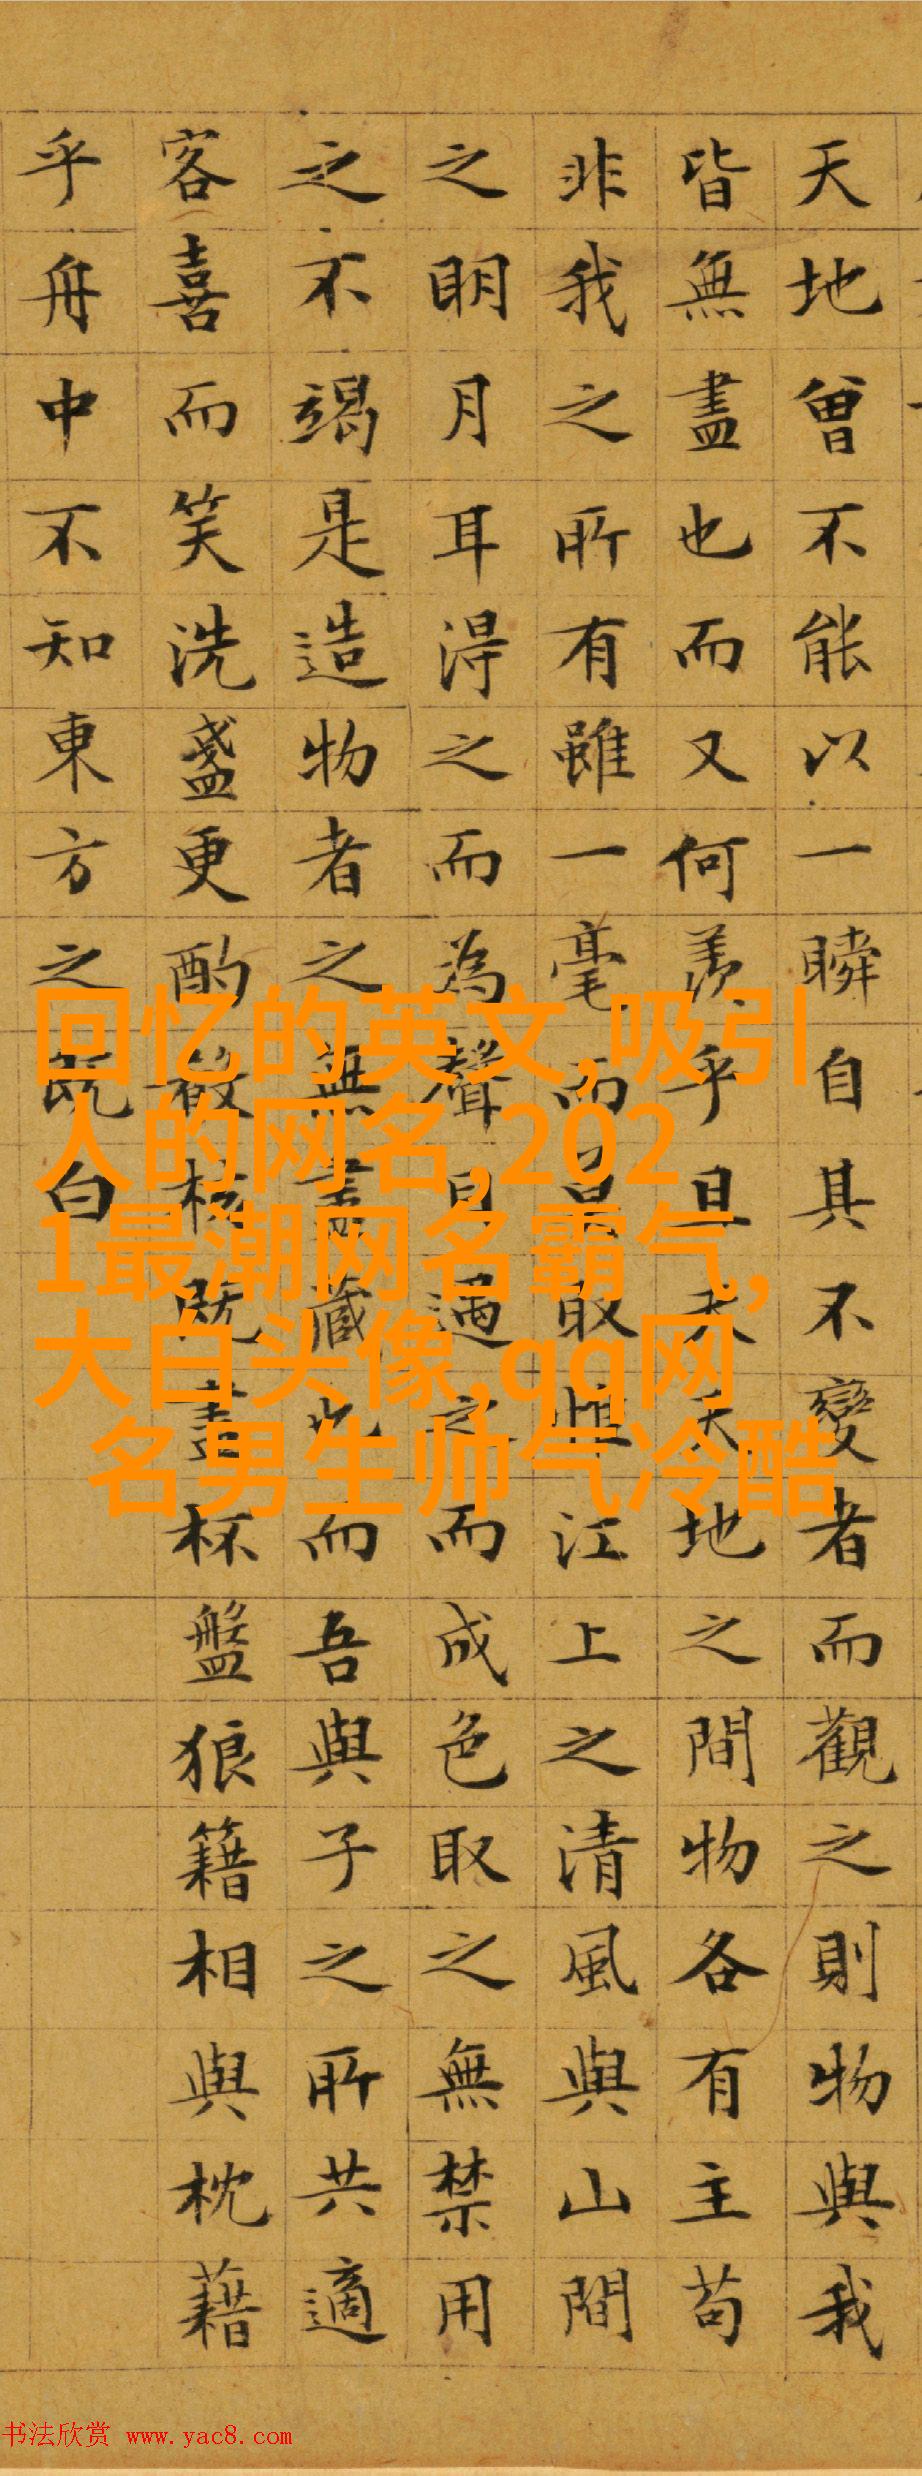 天地曾不能以一瞬自其不變者而觀之則物與我
皆無盡也而又何羨乎且夫天地之間物各有主苟
非我之所有雖一毫而莫取惟江上之清風與山間
之明月耳得之而為聲目遇之而成色取之無禁用
之不竭是造物者之無盡藏也而吾與子之所共適
客喜而笑洗盞更酌殽核既盡杯盤狼籍相與枕藉
乎舟中不知東方之既白
回忆的英文,吸引
人的网名,202
1最潮网名霸气,
大白头像,qq网
名男生帅气冷酷
书法欣赏 www.yac8.com